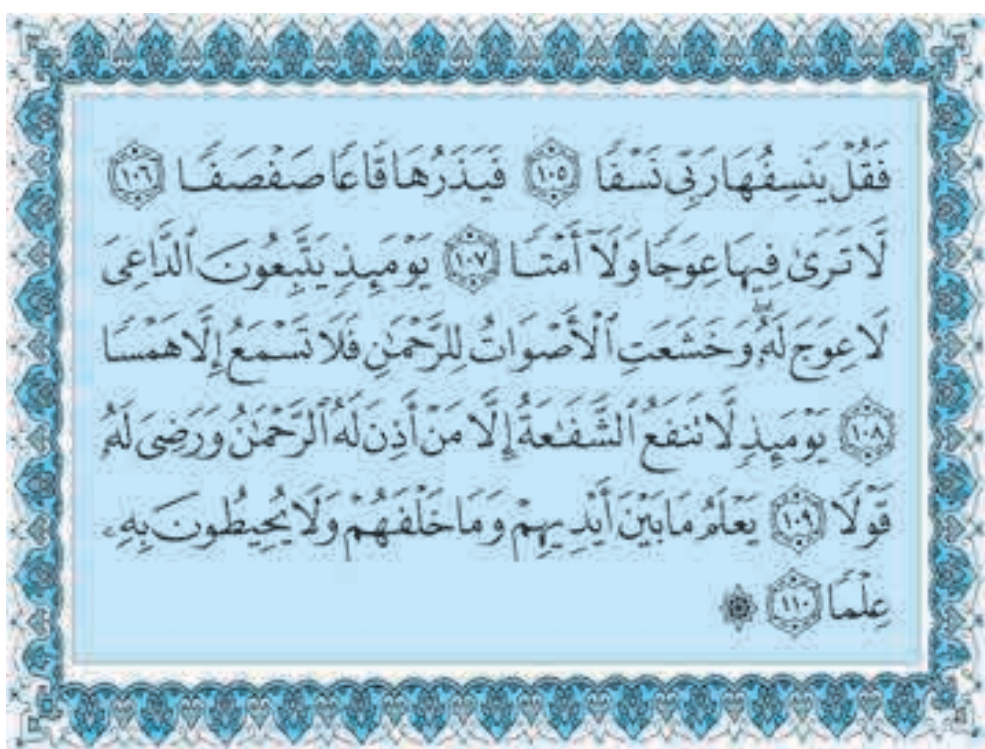 فَقُلْ يَنسِفُهَا رَبِّى نَسْفًا ١٠٥ فَيَذَرُهَا قَاعًا صَفْصَفًا ١٠٦
لَّا تَرَىٰ فِيهَا عِوَجًا وَلَآ أَمْتًا ١٠٧ يَوْمَئِذٍ يَتَّبِعُونَ ٱلدَّاعِىَ
لَا عِوَجَ لَهُۥ ۖ وَخَشَعَتِ ٱلْأَصْوَاتُ لِلرَّحْمَٰنِ فَلَا تَسْمَعُ إِلَّا هَمْسًا
١٠٨ يَوْمَئِذٍ لَّا تَنفَعُ ٱلشَّفَٰعَةُ إِلَّا مَنْ أَذِنَ لَهُ ٱلرَّحْمَٰنُ وَرَضِىَ لَهُۥ
قَوْلًا ١٠٩ يَعْلَمُ مَا بَيْنَ أَيْدِيهِمْ وَمَا خَلْفَهُمْ وَلَا يُحِيطُونَ بِهِۦ
عِلْمًا ١١٠